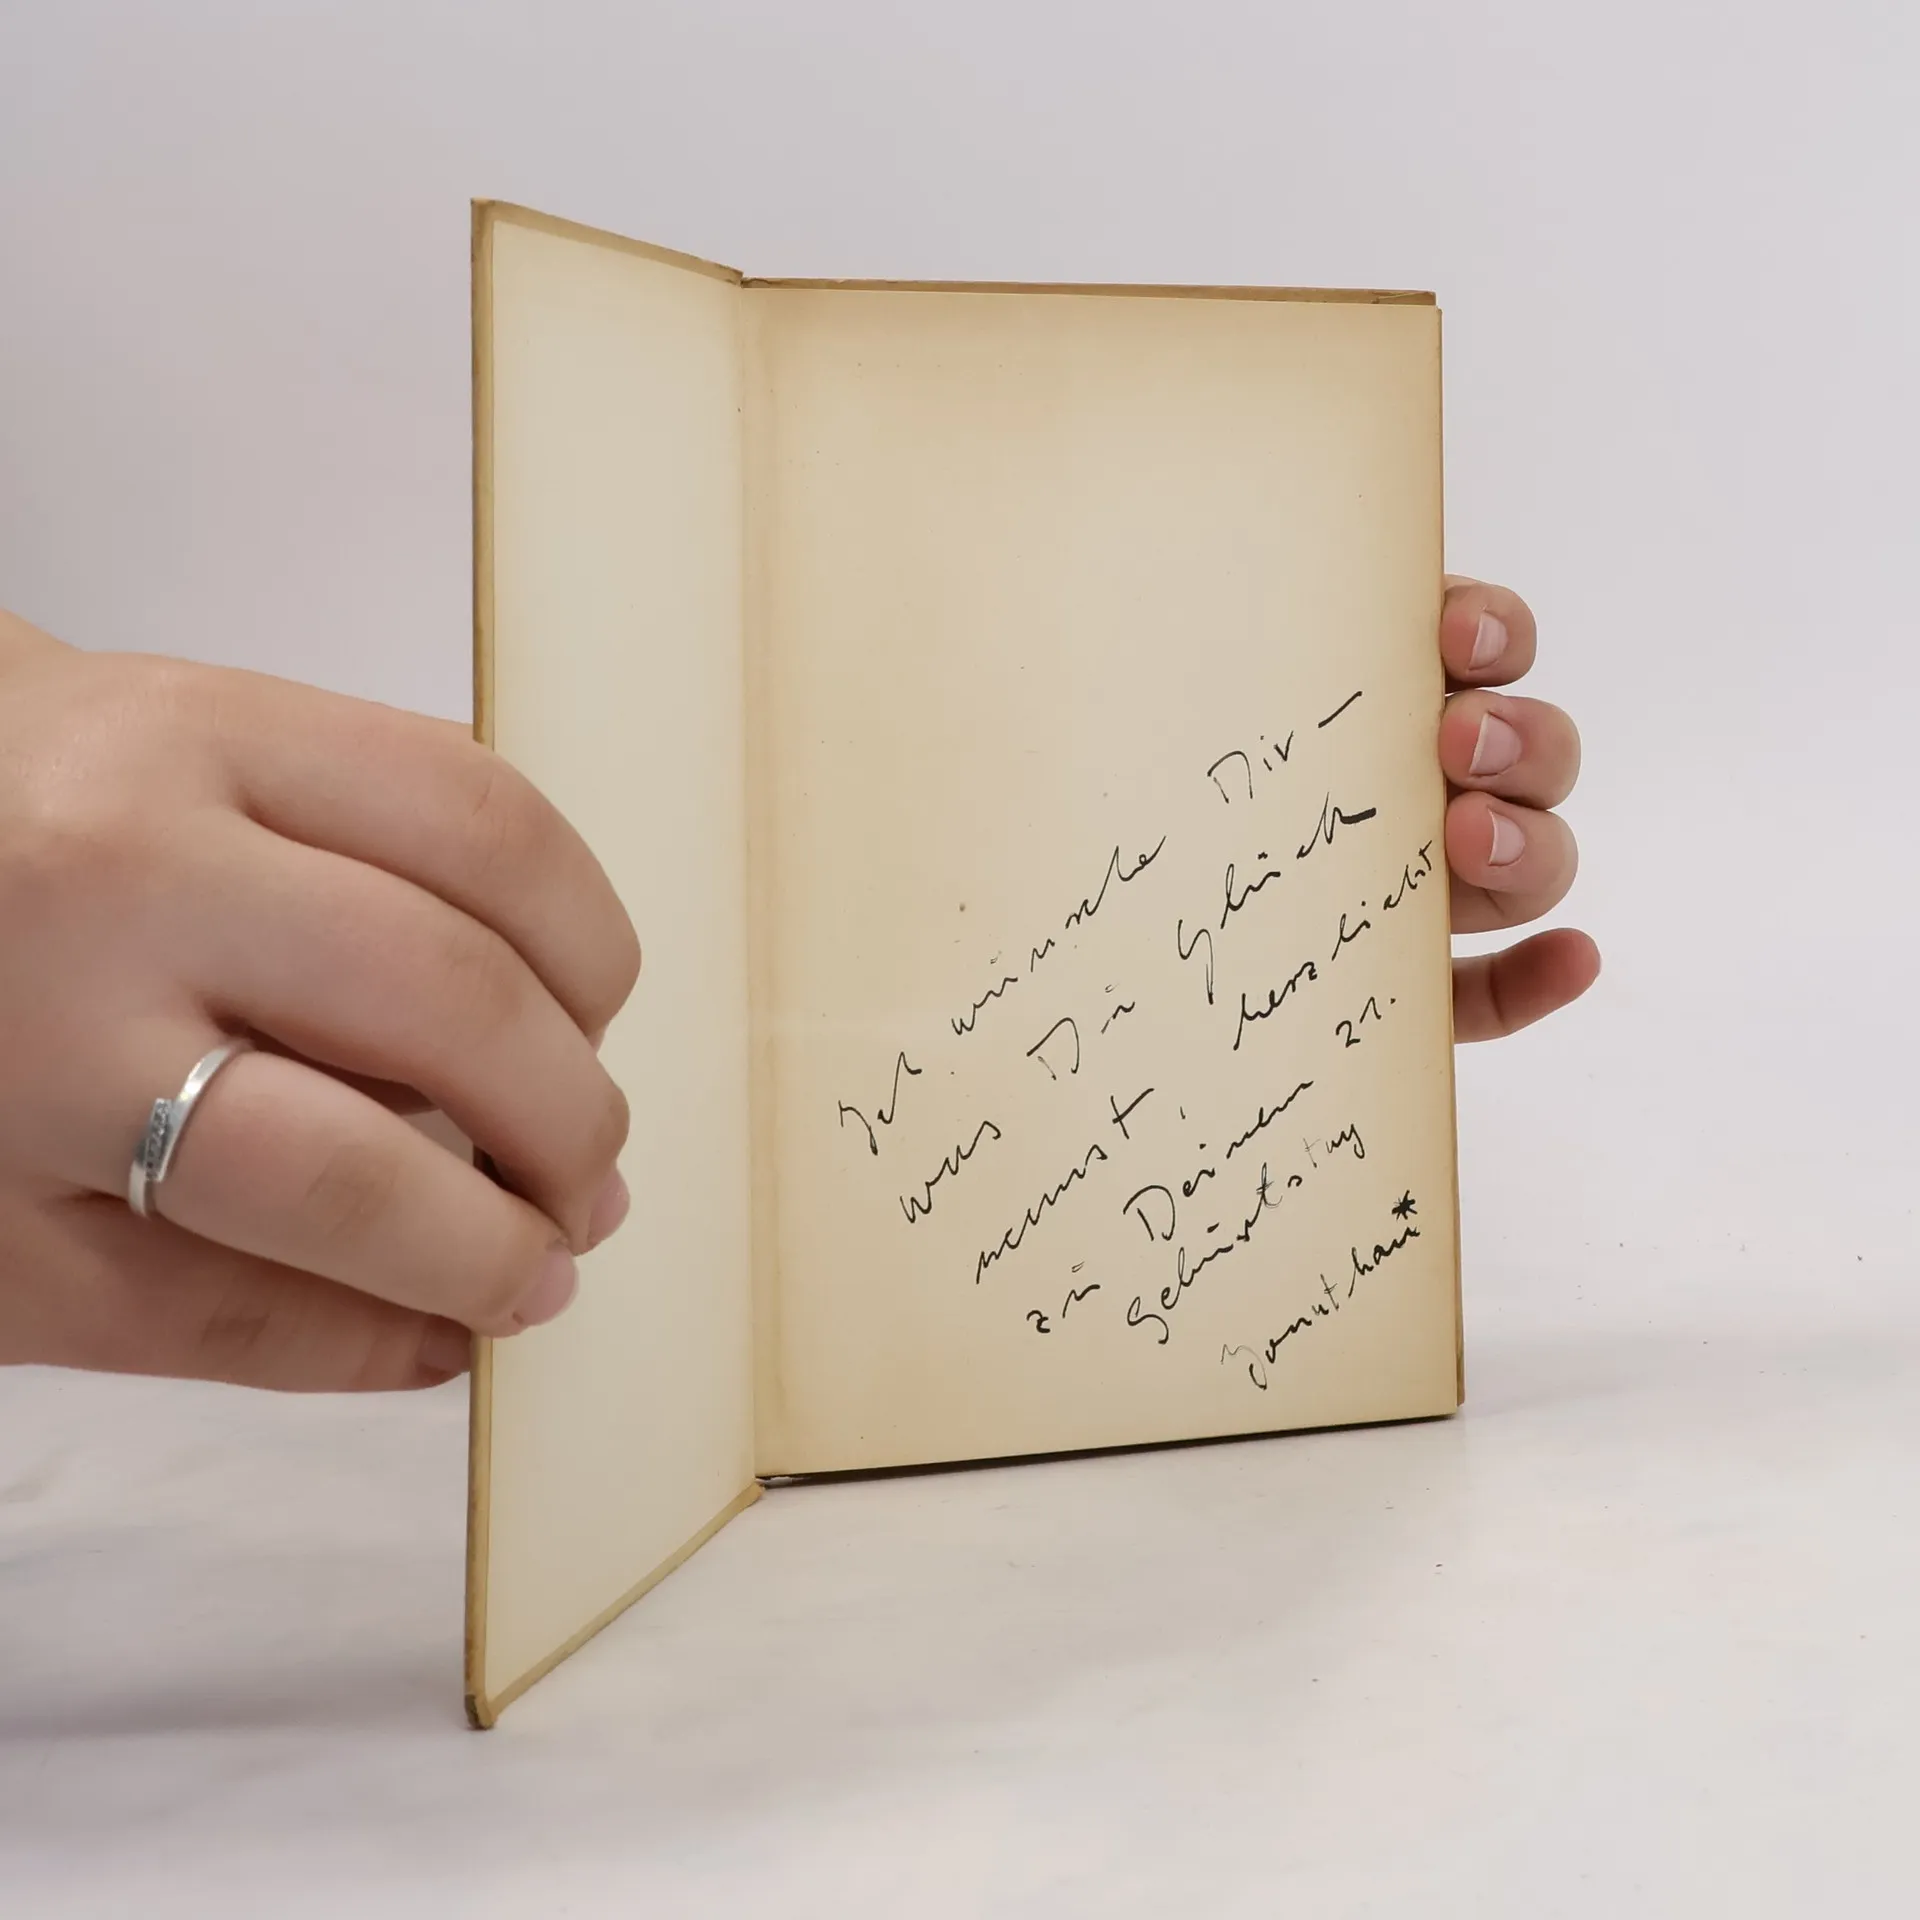 Ich wünsche Dir –
was Du Glück
nennst, herzlichst
zu Deinem 21.
Geburtstag
Jonathan*